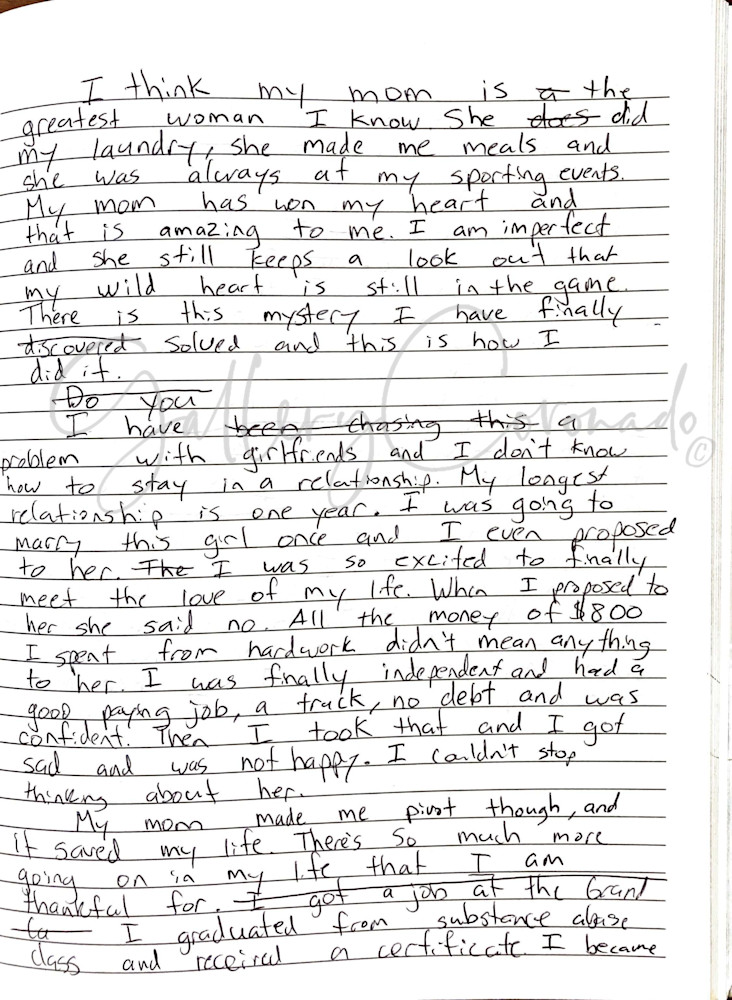 I think my mom is a the
greatest woman I know. She does did
my laundry, she made me meals and
she was always at my sporting events.
My mom has won my heart and
that is amazing to me. I am imperfect
and she still keeps a look out that
my wild heart is still in the game.
There is this mystery I have finally
discovered solved and this is how I
did it.
Do you
I have been chasing this a
problem with girlfriends and I don't know
how to stay in a relationship. My longest
relationship is one year. I was going to
marry this girl once and I even proposed
to her. The I was so excited to finally
meet the love of my life. When I proposed to
her she said no. All the money of $800
I spent from hardwork didn't mean anything
to her. I was finally independent and had a
good paying job, a truck, no debt and was
confident. Then I took that and I got
sad and was not happy. I couldn't stop
thinking about her.
My mom made me pivot though, and
it saved my life. There's so much more
going on in my life that I am
thankful for. I got a job at the Grand
Ca I graduated from substance abuse
class and received a certificate. I became
Gallery Coronado ©